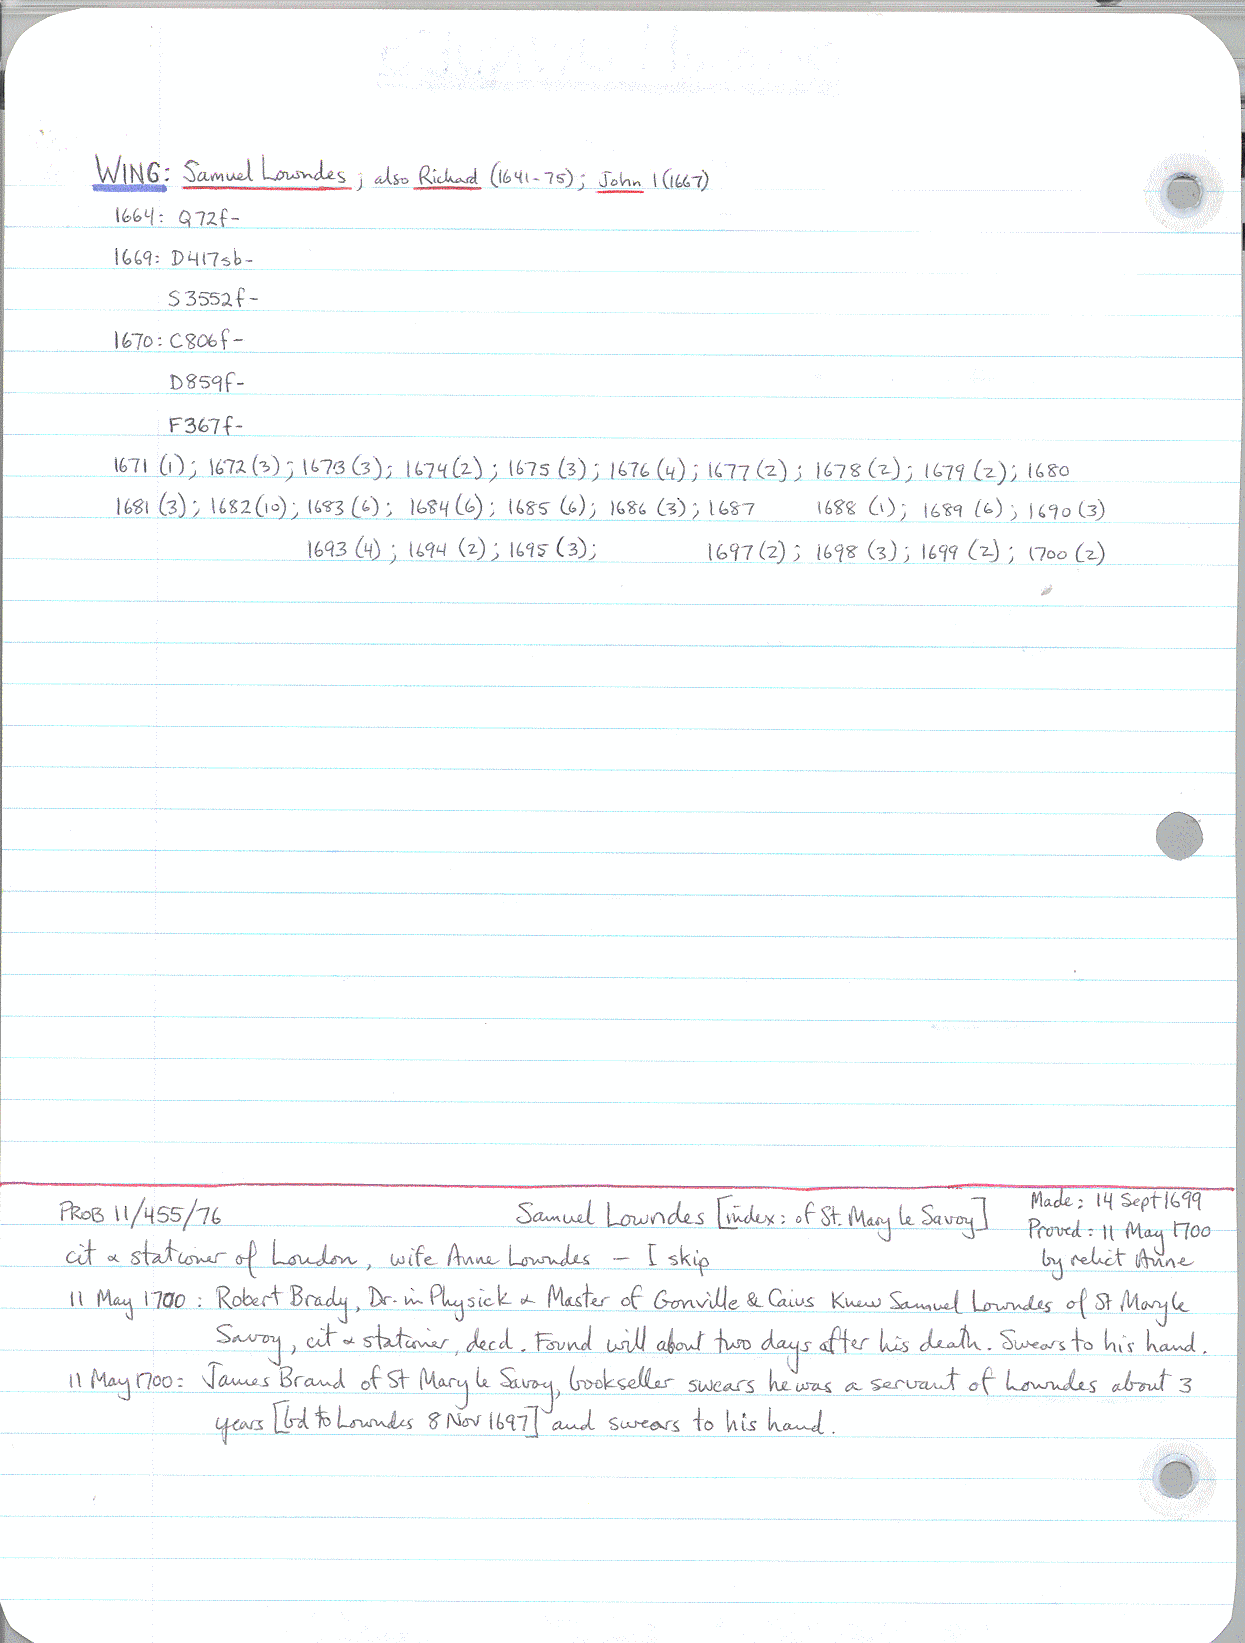 WING: Samuel Lowndes; also Richard (1641-75); John 1 (1667)
1664: Q72f-
1669: D417sb-
S3552f-
1670: C806f-
D859f-
F367f-
1671 (1); 1672 (3); 1673 (3); 1674 (2); 1675 (3); 1676 (4); 1677 (2); 1678 (2); 1679 (2); 1680
1681 (3); 1682 (10); 1683 (6); 1684 (6); 1685 (6); 1686 (3); 1687 1688 (1); 1689 (6); 1690 (3)
1693 (4); 1694 (2); 1695 (3); 1697 (2); 1698 (3); 1699 (2); 1700 (2)
PROB 11/455/76 Samuel Lowndes [index: of St. Mary le Savoy] Made: 14 Sept 1699
Proved: 11 May 1700
cit & stationer of London, wife Anne Lowndes — I skip by relict Anne
11 May 1700: Robert Brady, Dr. in Physick & Master of Gonville & Caius Knew Samuel Lowndes of St Mary le
Savoy, cit & stationer, decd. Found will about two days after his death. Swears to his hand.
11 May 1700: James Brand of St Mary le Savoy, bookseller swears he was a servant of Lowndes about 3
years [bd to Lowndes 8 Nov 1697] and swears to his hand.